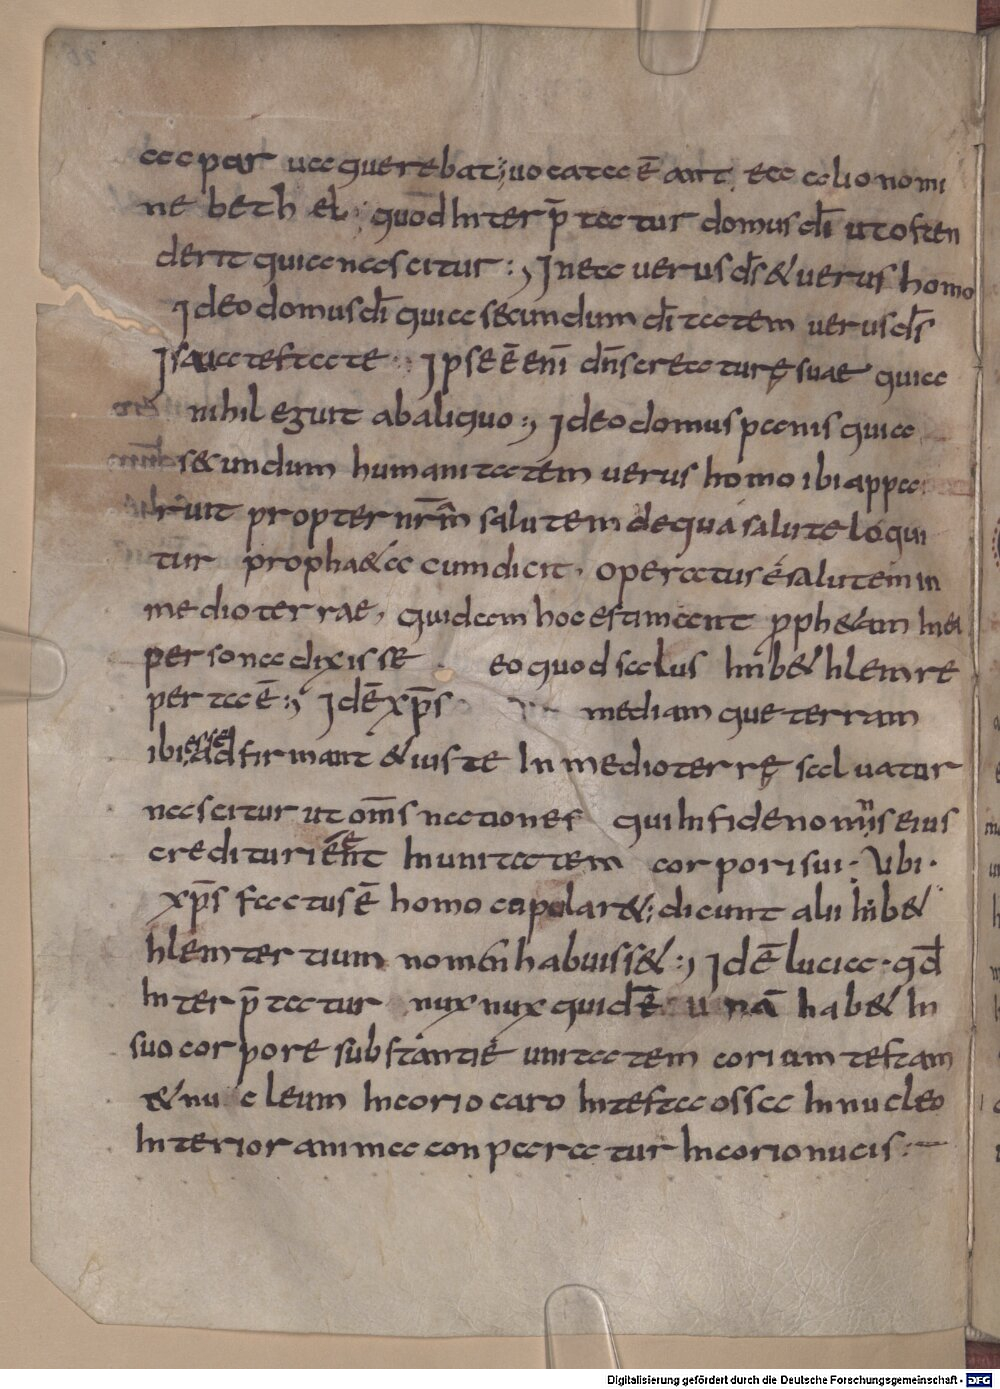 a par va querebat; vocata ē aut ea alio nomi
ne beth el; quod Interp̄tatur domus dī ut osten
derit quia nascitur :, In ea uerus d̄s & uerus homo
Ideo domus dī quia secundum dītatem uerus d̄s
Isaac testate Ipse ē enī dn̄s creaturę suae quia
nihil eguit ab aliquo :, Ideo domus panis quia
secundum humanitatem uerus homo ibi appa
ruit propter nr̄am salutem de qua salute loqui
tur propha&a cum dicit, operatus ē salutem in
medio terrae, quidam hoc estimant p̱ph&am In ei
persona dixisse eo quod salus In b&hlem re
perta ē :, Idē xp̄s mediamque terram
ibi esse adfirmant & iuste In medio terrę saluator
nascitur ut om̄s nationes qui In fide nominis eius
credituri essent In unitatem corpori sui · Ubi ·
xp̄s factus ē homo copolar&; dicunt alii In b&
hlem tertium nomen habuiss& :, Idē lucia · qd̄
Interp̄tatur nux nux quidē unā hab& In
suo corpore substantiē unitatem corium testam
& nucleum In corio caro In testa ossa In nucleo
Interior anima conparatur In corio nucis :
Digitalisierung gefördert durch die Deutsche Forschungsgemeinschaft - DFG